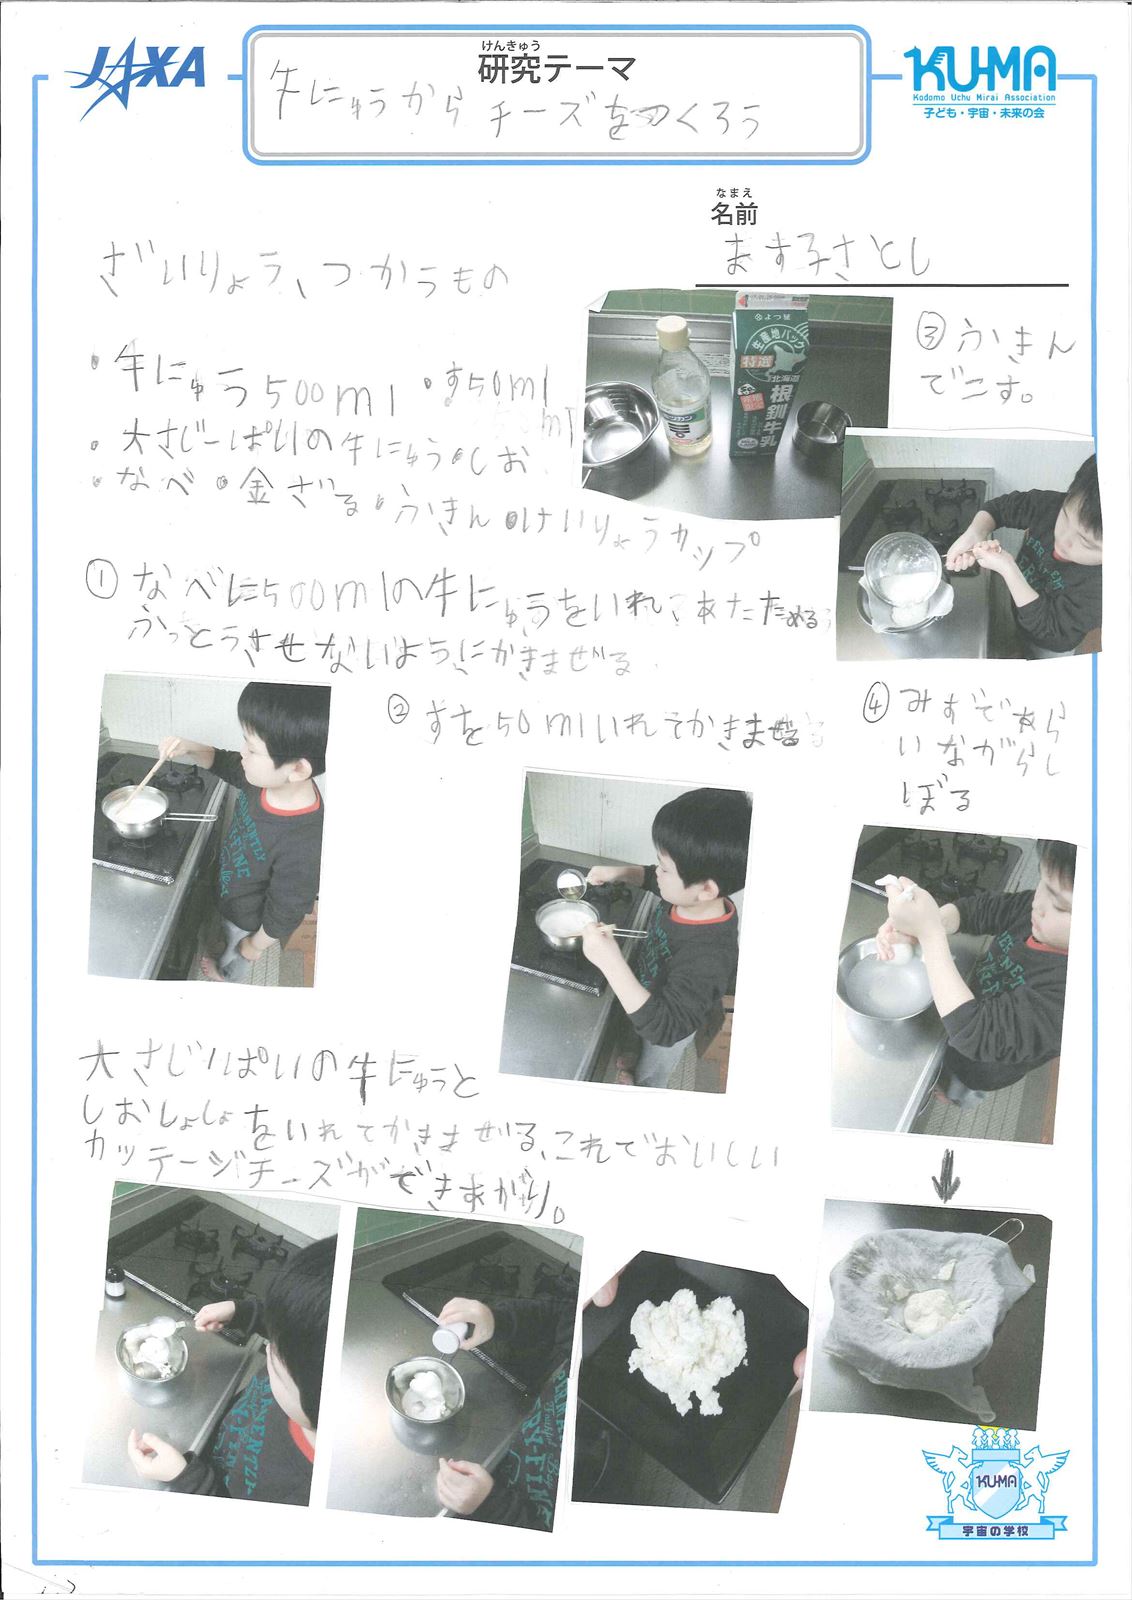 JAXA
けんきゅう
研究テーマ
牛にゅうからチーズをつくろう
KU-MA
Kodomo Uchu Mirai Association
子ども・宇宙・未来の会
なまえ
名前
ます子さとし
ざいりょう、つかうもの
・牛にゅう500ml ・す50ml
・大さじ一ぱいの牛にゅう・しお
・なべ ・金ざる・ふきん・けいりょうカップ
よつ葉
生産地パック
特選
北海道
根釧牛乳
ミツカン
①なべに500mlの牛にゅうをいれてあたためる
ふっとうさせないようにかきまぜる
②すを50mlいれてかきまぜる
③ふきん
でこす。
④みずであら
いながらし
ぼる
大さじ1ぱいの牛にゅうと
しおしょしょをいれてかきまぜる、これでおいしい
カッテージチーズができあがり。
KU-MA
宇宙の学校